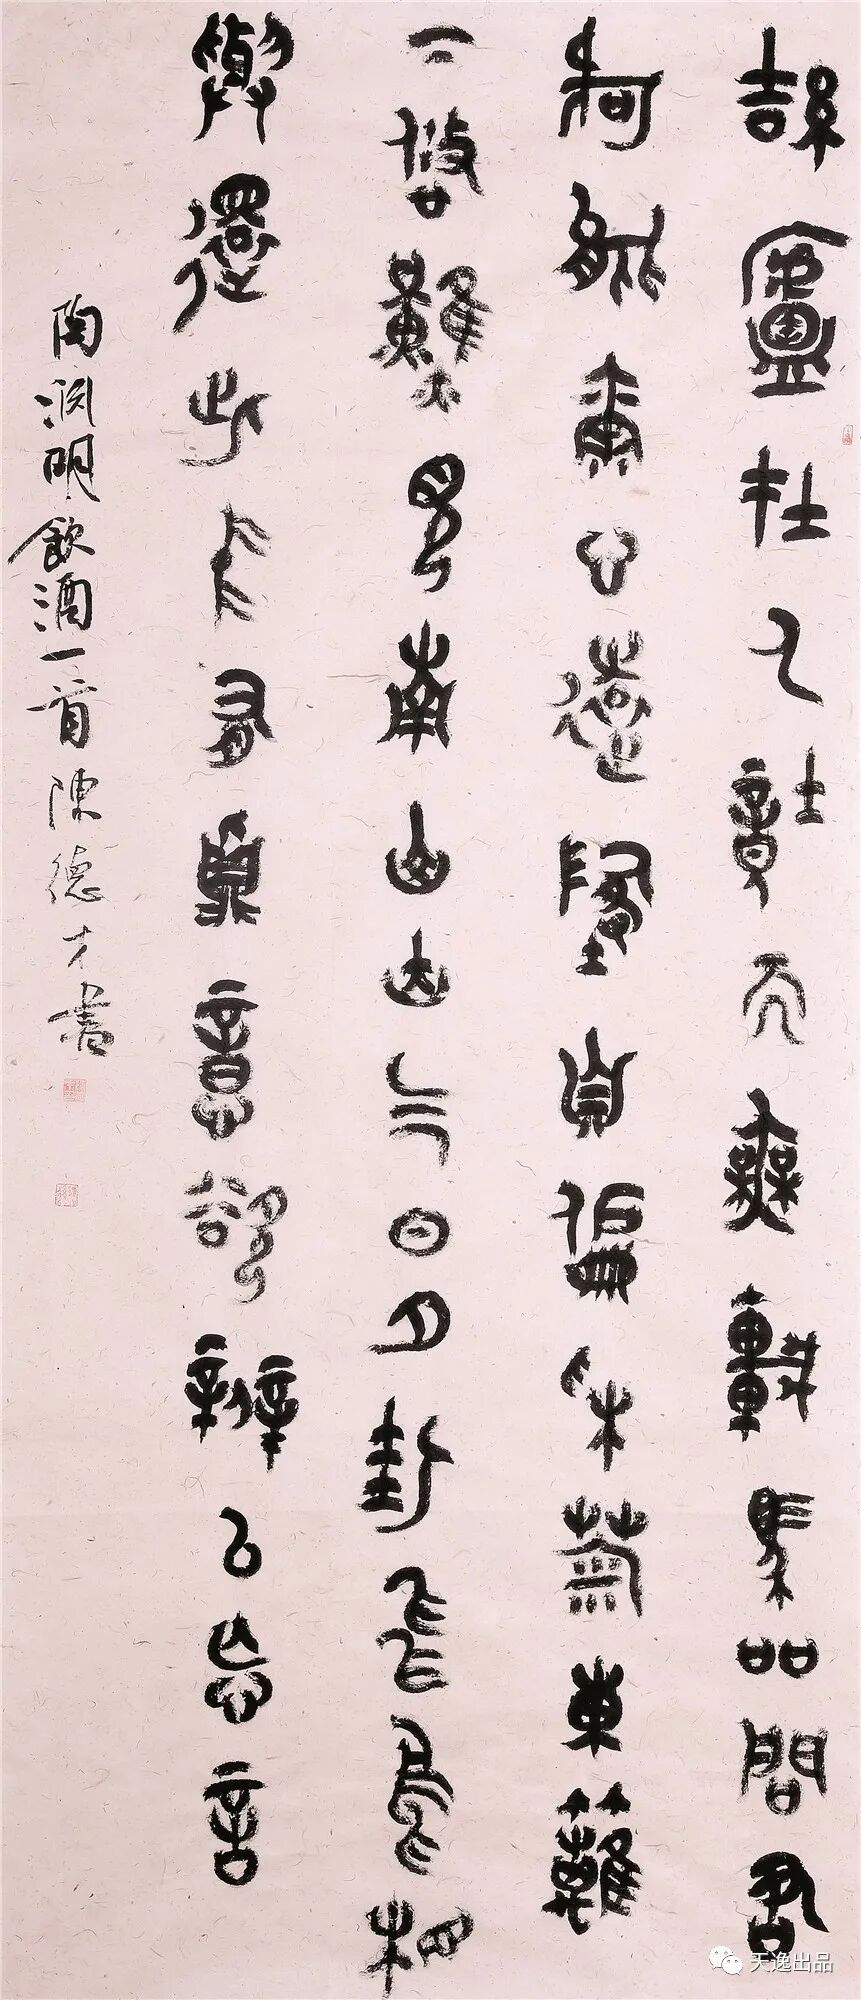 結廬在人境而無車馬吅問君
何能爾心遠地自偏采菊東籬
下悠然見南山山气日夕佳飛鳥相
與還此中有真意欲辨已忘言
陶渊明飲酒一首 陳德才書
天逸出品